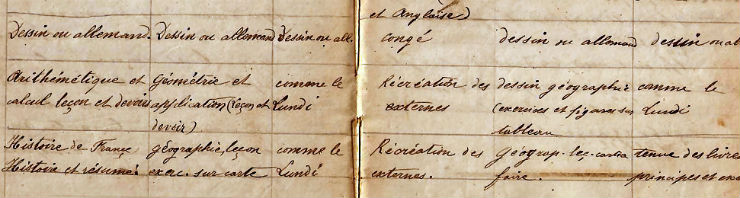 et Anglaise)
Dessin ou allemand. Dessin ou allemand Dessin ou all congé dessin ou allemand dessin ou al
Arithmétique et Géométrie et comme le Récréation des dessin géographie comme le
calcul leçon et devoirs application (leçon et Lundi externes (exercices et figures sur Lundi
devoir) tableau
Histoire de France géographie, leçon comme le Récréation des Géograp. lec. carte tenue des livres
Histoire et résumé exerc. sur carte Lundi externes. faire. principes et exe